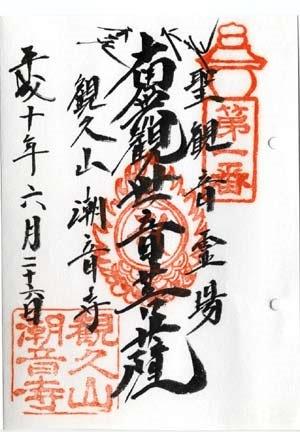 第一番
聖観音霊場
南無観世音菩薩
観久山潮音寺
平成十年六月二十六日
観久山
潮音寺